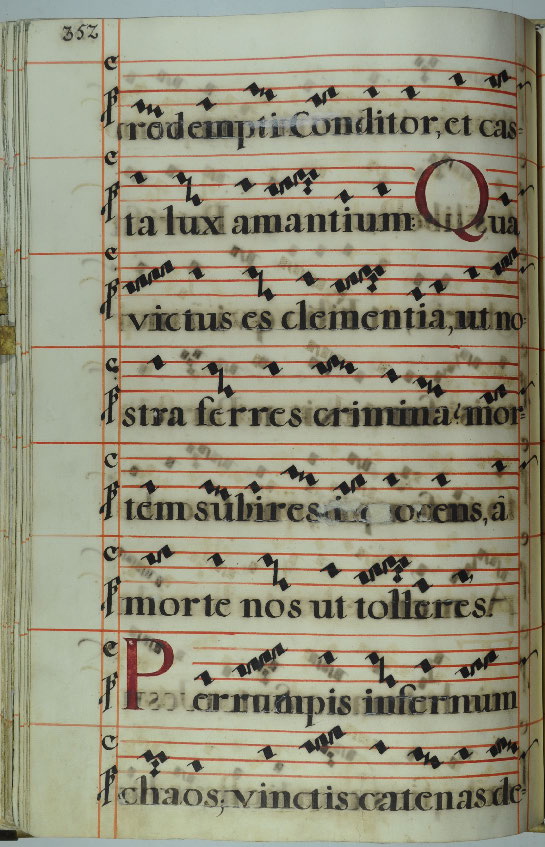 352
redempti Conditor, et cas-
ta lux amantium: Qua
victus es clementia, ut no
stra ferres crimina? mor-
tem subires innocens, â
morte nos ut tolleres?
Perrumpis infernum
chaos; vinctis catenas de-